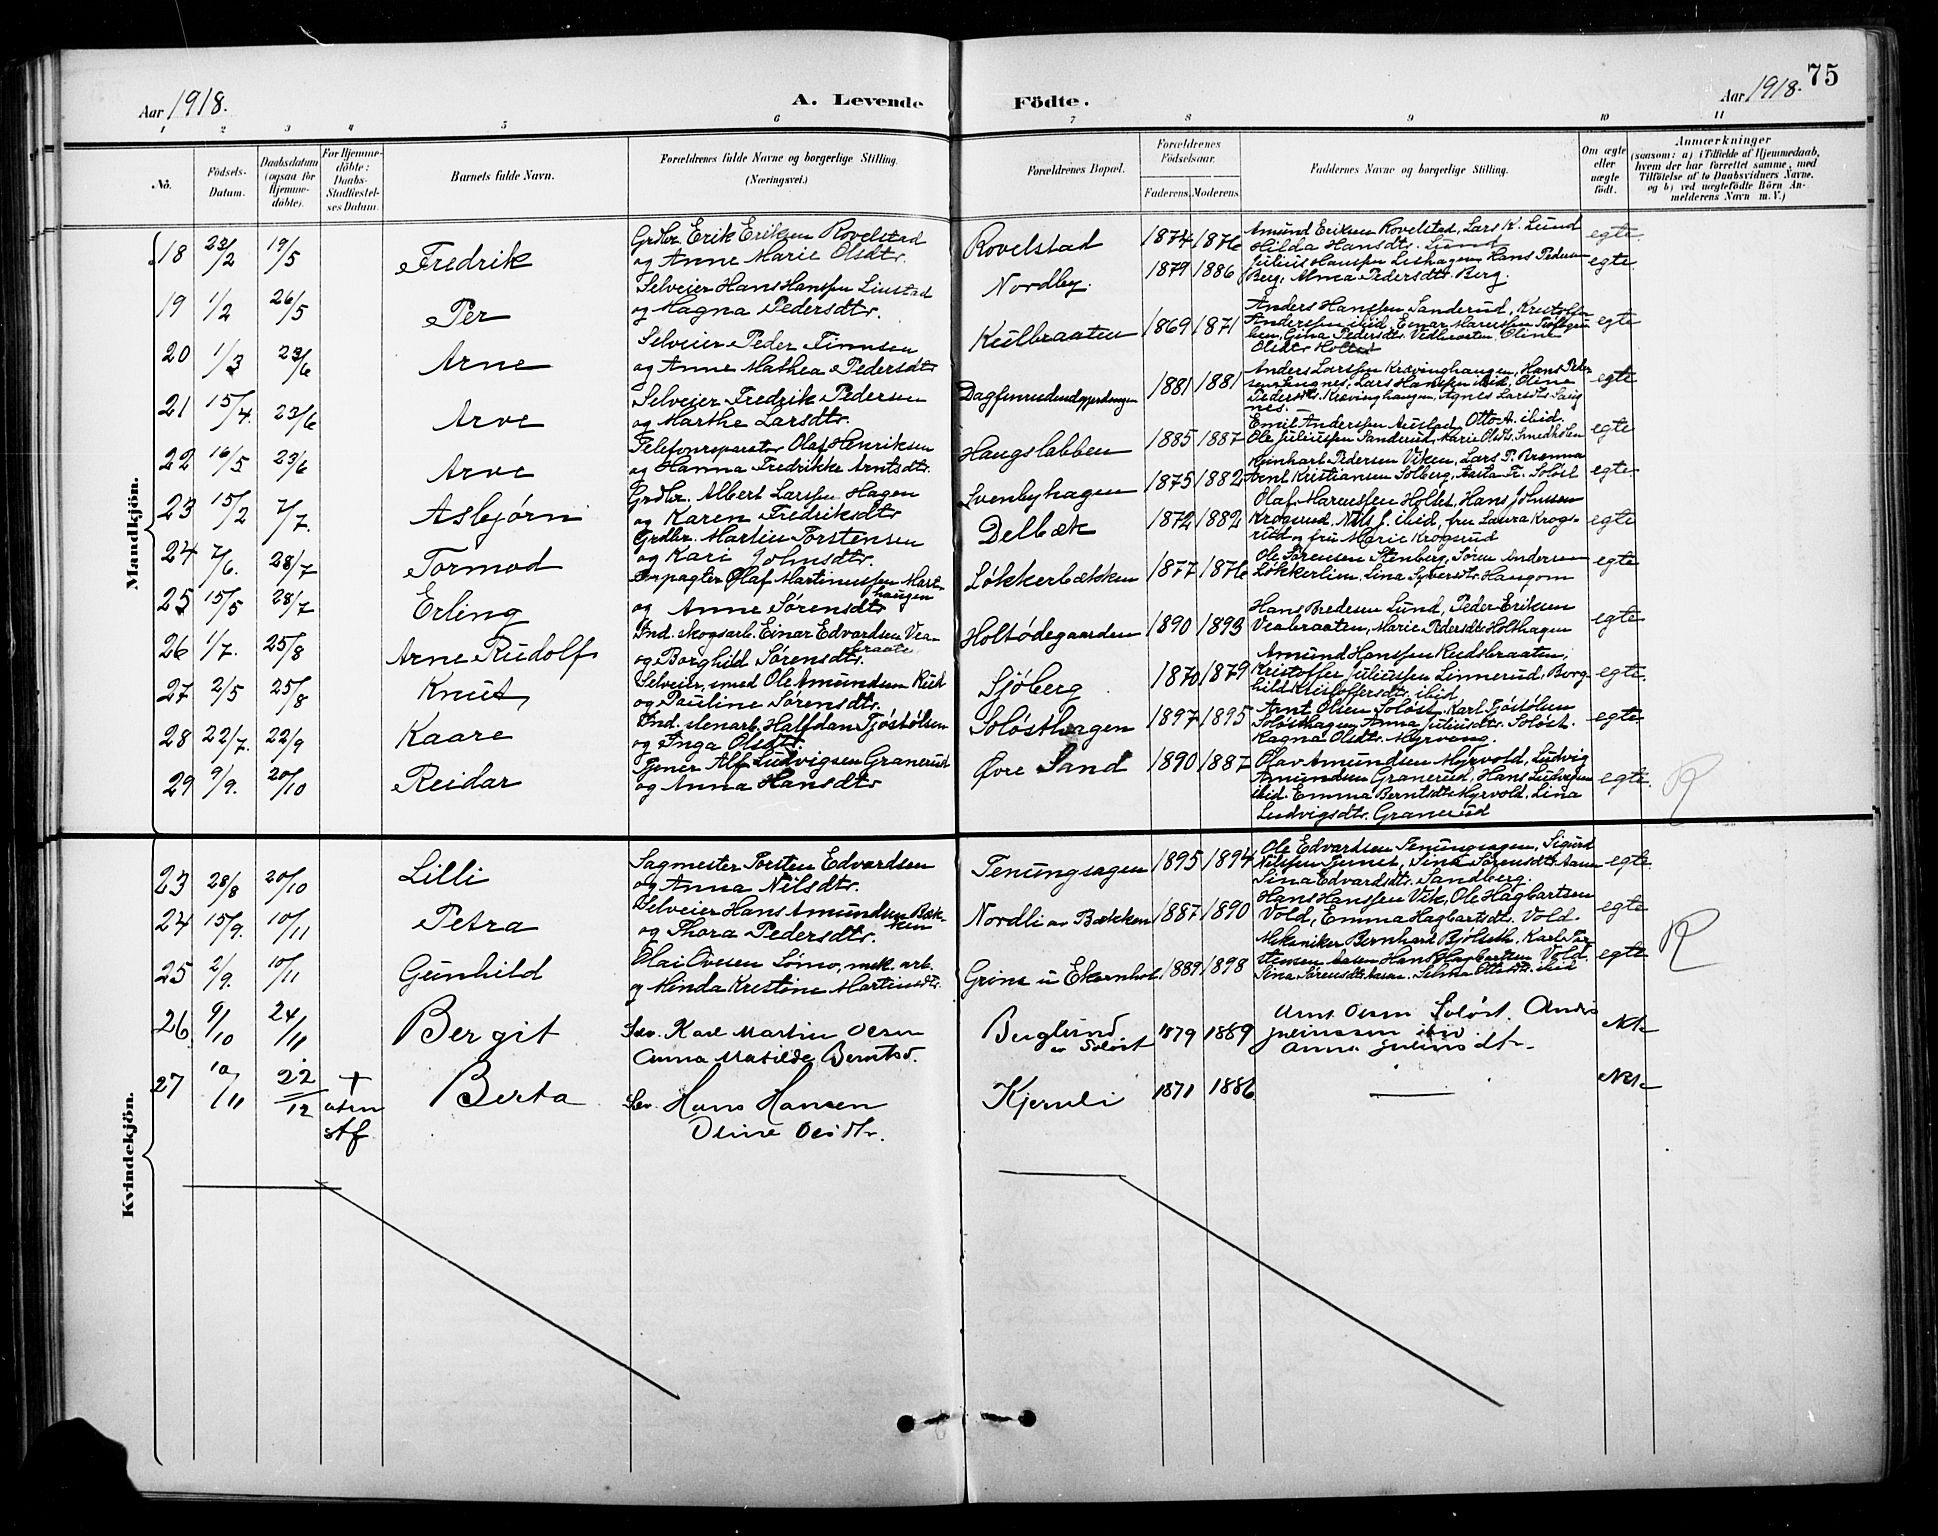 Aar 1918.
A. Levende Födte.
Aar 1918.
75
1 2 3 4 5 6 7 8 9 10 11
No.
Födsels-Datum.
Daabsdatum (ogsaa for Hjemme-döbte).
For Hjemme-döbte: Daabs-Stadfæstel-ses Datum.
Barnets fulde Navn.
Forældrenes fulde Navne og borgerlige Stilling. (Næringsvei.)
Forældrenes Bopæl.
Forældrenes Födselsaar.
Faderens. Moderens.
Faddernes Navne og borgerlige Stilling.
Om ægte eller uægte født.
Anmærkninger
(saasom: a) i Tilfælde af Hjemmedaab,
hvem der har forrettet samme, med
Tilföielse af to Daabsvidners Navne,
og b) ved uægtefödte Börn An-
melderens Navn m. V.)
Mandkjön.
18 22/2 19/5 Fredrik Grdbr. Erik Eriksen Rovelstad og Anne Marie Olsdtr. Rovelstad 1874 1876 Amund Eriksen Rovelstad, Lars K. Lund Hilda Hansdtr. Lund egte
19 1/2 26/5 Per Selveier Hans Hanssen Linstad og Magna Pedersdtr. Nordby 1879 1886 Julius Hanssen Hans Pedersen Berg, Alma Pedersdtr. Berg. egte
20 1/3 23/6 Arne Selveier Peder Finnsen og Anne Mathea Pedersdtr Kulbraaten 1869 1871 Anders Hanssen Sanderud, Kristoffer Anderssen ibid, Einar Marussen Gina Pedersdtr. Vidbraaten, Oline Olsdtr Holtet egte
21 15/4 23/6 Arve Selveier Fredrik Pedersen og Marthe Larsdtr. 1881 1881 Anders Larssen Krævinghaugen, Hans Peder-sen Lars Hanssen ibid, Oline Pedersdtr. Krævinghaugen, Agnes Larsdtr. egte
22 16/5 23/6 Arve Telefonreparatør Olaf Henriksen og Hanna Fredrikke Arntsdtr. Haugslabben 1885 1887 Emil Anderssen Austad, Otto A. ibid. Ole Juliussen Sanderud, Marie Olsdtr. Smedholen egte
23 15/2 7/7. Asbjørn Grdbr. Albert Larssen Hagen og Karen Fredriksdtr Svenbyhagen 1875 1882 Reinhart Pedersen Viken, Lars P. Arnt Kristiansen Solberg, Aasta Fr. Soløst egte
24 7/6. 28/7 Tormod Grdbr. Martin Torstensen og Kari Johnsdtr. Delbæk 1872 1882 Olaf Marussen Holtet, Hans Johnssen Krogsrud, Nils J. ibid, fru Laura Krogs-rud og fru Marie Krogsrud egte
25 15/5 28/7 Erling Forpagter Olaf Martinussen Mart-haugen og Anne Sørensdtr Løkkerbækken 1877 1876 Ole Sørensen Stenberg, Søren Andersen Løkkerlien, Lina Syversdtr. Haugom egte
26 1/7. 25/8 Arne Rudolf Ind. skogsarb. Einar Edvardsen Vea-braaten og Borghild Sørensdtr. Holtødegaarden 1890 1893 Hans Bredesen Lund, Peder Eriksen Veabraaten, Marie Pedersdtr Holthagen egte
27 2/5 25/8 Knut Selveier, smed Ole Amundsen Rud og Pauline Sørensdtr. Sjøberg 1870 1879 Amund Hanssen Rudsbraaten, Kristoffer Juliussen Linnerud, Borg-hild Kristoffersdtr. ibid egte.
28 22/7. 22/9 Kaare Ind. stenarb. Halfdan Tjøstølsen og Inga Olsdtr. Soløsthagen 1897 1895 Arnt Olsen Soløst, Karl Tjøstølsen Soløsthagen, Anna Juliusdtr. Soløst. Ragna Olsdtr. Myrvang. egte
29 9/9. 20/10 Reidar Alf Ludvigsen Granerud og Anna Hansdtr Øvre Sand 1890 1887 Olav Amundsen Myrvold, Ludvig Amundsen Granerud, Hans Ludvigsen ibid. Emma Berntsdtr Myrvold, Lina Ludvigsdtr. Granerud egte. R
Kvindekjön.
23 28/8 20/10 Lilli Sagmester Torsten Edvardsen og Anna Nilsdtr. Tenungsagen 1895 1894 Ole Edvardsen Tenungsagen, Sigurd Nilssen Sina Sørensdtr. Aasen Sina Edvardsdtr. Sandberg. egte
24 15/9. 10/11 Petra Selveier Hans Amundsen Bæk-ken og Thora Pedersdtr. Nordli av Bækken 1887 1890 Hans Hanssen Vik, Ole Hagbartsen Vold, Emma Hagbartsdtr. Vold. egte R
25 2/9. 10/11 Gunhild Olai Ovesen Lømo, mek. arb. og Minda Kristine Martinsdtr. 1889 1898 Mekaniker Bernhard Bjølseth, Karl Tor-stensen Aasen Hans Hagbartsen Vold. Sina Sørensdtr. Aasen. Selma Ottosdtr. ibid egte
26 9/10 24/11 Bergit Sev. Karl Martin Olsen Anna Matilde Berntsd. Berglund av Soløst 1879 1889 Arnt Olsen Soløst. Anders Juliussen ibid. Anna Juliusdtr. ekte
27 10/11 22/12 + Berta Sev. Hans Hansen Oline Olsdtr. Kjernli 1871 1886 — ekte